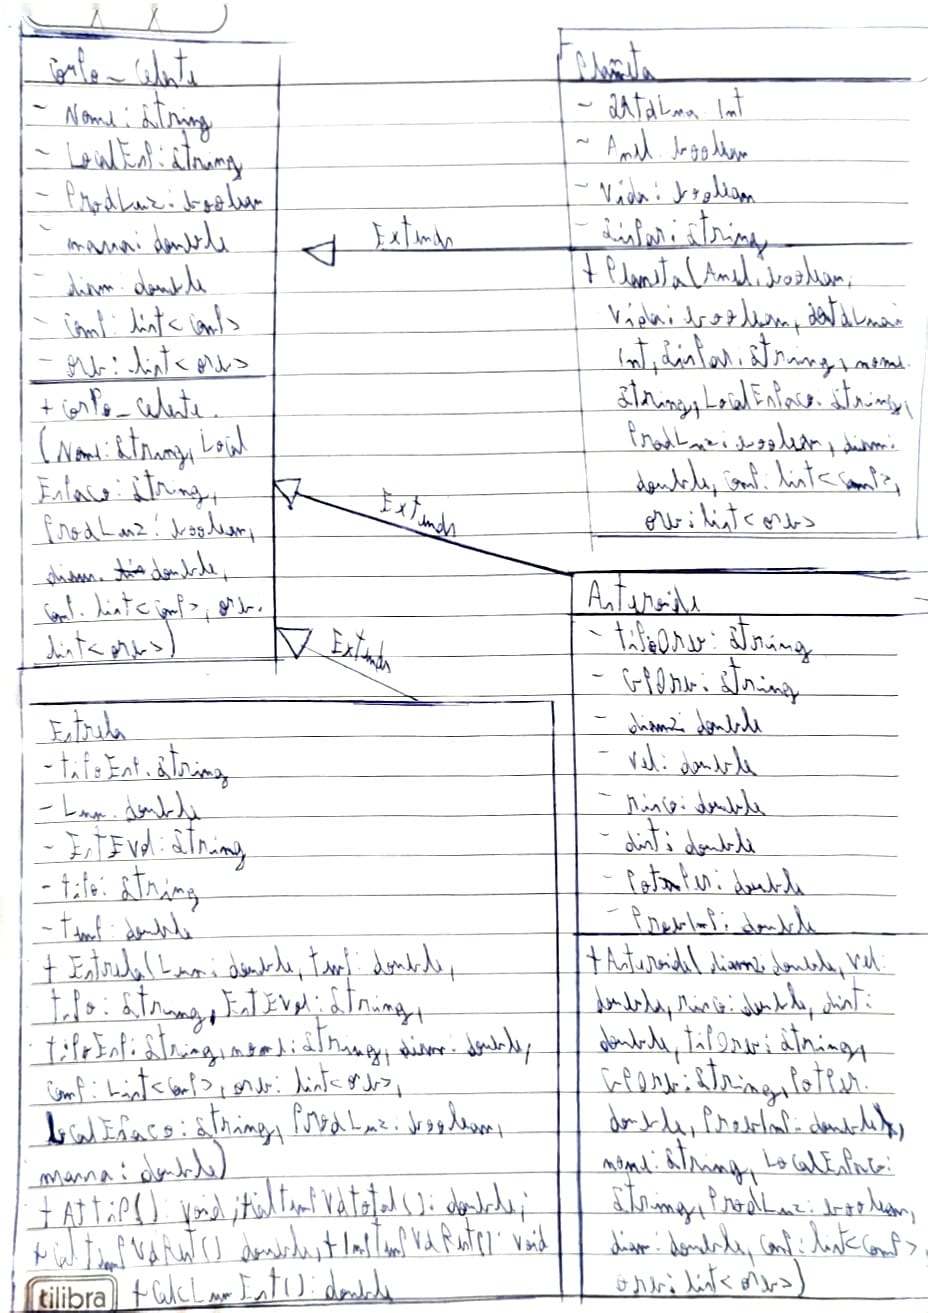 Corpo_Celeste
- Nome: String
- LocalEsp: String
- ProdLuz: boolean
- massa: double
- diam: double
- comp: list<comp>
- orb: list<orb>
+ Corpo_Celeste.
(Nome: String, Local
Espaco: String,
ProdLuz: boolean,
diam. double,
comp. list<comp>, orb.
list<orb>)
Planeta
- QtdLua. Int
- Anel. boolean
- Vida: boolean
- DisPar: String
+ Planeta(Anel. boolean,
Vida: boolean, QtdLua:
Int, DisPar. String, nome.
String, LocalEspaco. String,
ProdLuz: boolean, diam:
double, comp: list<comp>,
orb: list<orb>
Extends
Extends
Extends
Asteroide
- tipoOrb: String
- GPOrb: String
- diam2: double
- Vel: double
- risco: double
- dist: double
- PotPer: double
- ProbImp: double
+Asteroide(diam2: double, Vel:
double, risco: double, dist:
double, tipOrb: String,
GPOrb: String, PotPer.
double, ProbImp: double,
nome: String, LocalEspaco:
String, ProdLuz: boolean,
diam: double, comp: list<comp>,
orb: list<orb>)
Estrela
- tipoEsp. String
- Lum. double
- EstEvol: String
- tipo: String
- temp: double
+ Estrela(Lum: double, temp: double,
tipo: String, EstEvol: String,
tipoEsp: String, nome: String, diam: double,
comp: List<comp>, orb: list<orb>,
LocalEspaco: String, ProdLuz: boolean,
massa: double)
+ AtTip(): void; +CaltempVdtotal(): double;
+ CaltempVdRest() double, +ImptempVdRest(): void
+ CalcLumEst(): double
tilibra